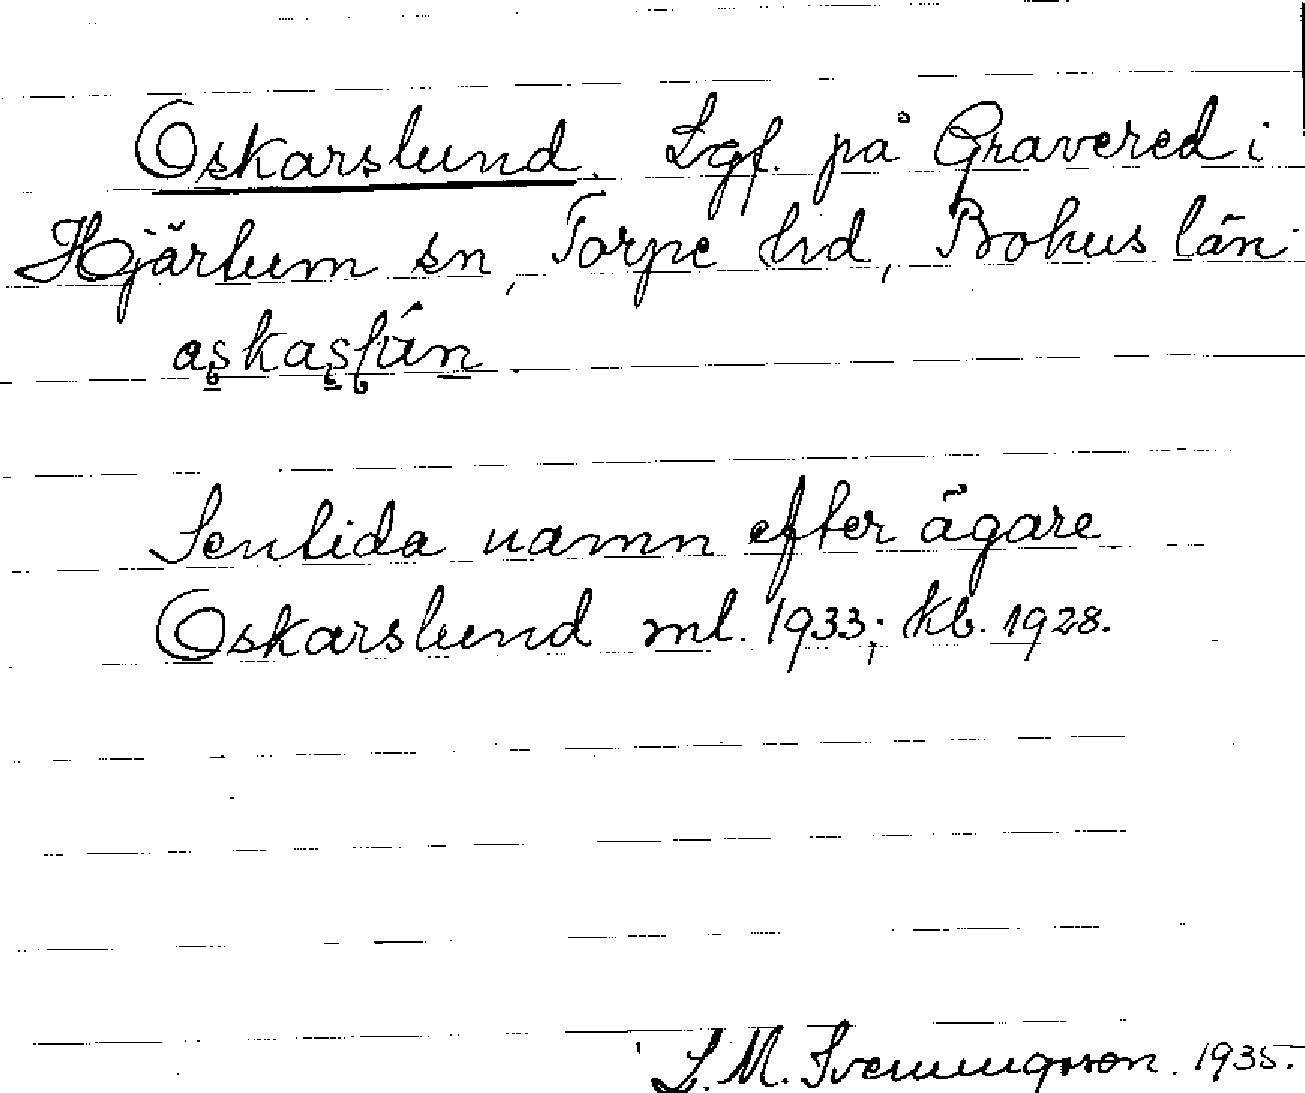 Oskarslund. Lgf. på Gravered i
Hjärtum sn, Torpe hd, Bohus län
Sentida namn efter ägare
Oskarslund ml. 1933; kb. 1928.
L. M. Svenungsson. 1935.